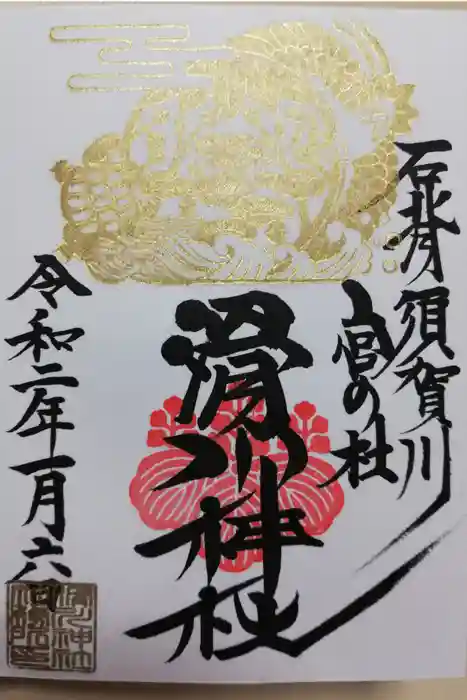 石背須賀川
上宮の杜
滑川神社
令和二年一月六日